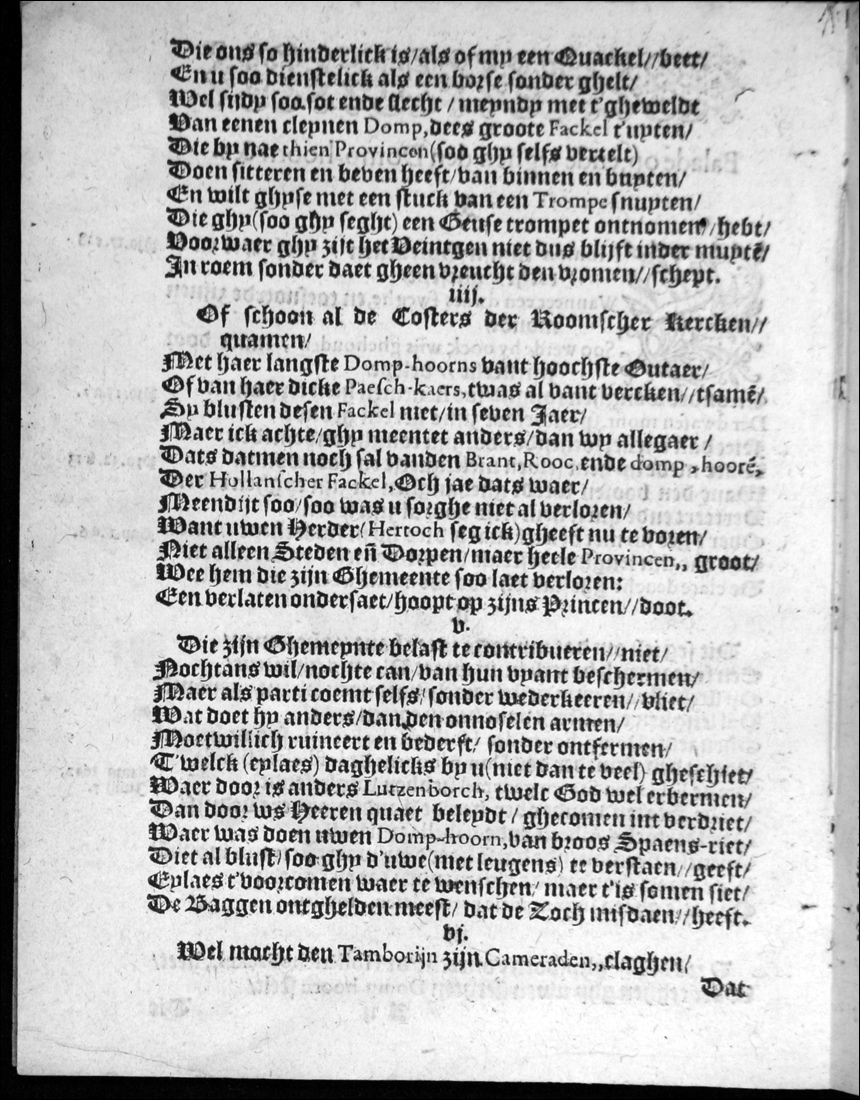 Die ons so hinderlick is/als of my een Quackel//beet/
En u soo dienstelick als een borse sonder ghelt/
Wel sijdy soo sot ende slecht / meyndy met t'gheweldt
Van eenen cleynen Domp, dees groote Fackel t'uyten/
Die by nae thien Provincen (soo ghy selfs vertelt)
Doen sitteren en beven heeft/van binnen en buyten/
En wilt ghyse met een stuck van een Trompe snuyten/
Die ghy(soo ghy seght) een Geuse trompet ontnomen//hebt/
Voorwaer ghy zijt het Veintgen niet dus blijft inder muytē/
In roem sonder daet gheen vreucht den vromen//schept.
iiij.
Of schoon al de Costers der Roomscher Kercken//
quamen/
Met haer langste Domp-hoorns vant hoochste Outaer/
Of van haer dicke Paesch-kaers, twas al vant vercken//tsamē/
Sy blusten desen Fackel niet/in seven Jaer/
Maer ick achte/ghy meentet anders/dan wy allegaer /
Dats datmen noch sal vanden Brant, Rooc, ende domp,,hoorē,
Der Hollanscher Fackel, Och jae dats waer/
Meendijt soo/soo was u sorghe niet al verloren/
Want uwen Herder(Hertoch seg ick)gheeft nu te voren/
Niet alleen Steden eñ Dorpen/maer heele Provincen,, groot/
Wee hem die zijn Ghemeente soo laet verloren:
Een verlaten ondersaet/hoopt op zijns Princen//doot.
v.
Die zijn Ghemeynte belast te contribueren//niet/
Nochtans wil/nochte can/van hun vyant beschermen/
Maer als parti coemt selfs/sonder wederkeeren//vliet/
Wat doet hy anders/dan den onnoselen armen/
Moetwillich ruineert en bederft/ sonder ontfermen/
T'welck (eylaes) daghelicks by u(niet dan te veel) gheschiet/
Waer door is anders Lutzenborch, twelc God wel erbermen/
Dan door ws Heeren quaet beleydt / ghecomen int verdriet/
Waer was doen uwen Domp-hoorn, van broos Spaens-riet/
Diet al blust/soo ghy d'uwe(met leugens) te verstaen//geeft/
Eylaes t'voorcomen waer te wenschen/ maer t'is somen siet/
De Baggen ontghelden meest/ dat de Zoch misdaen//heeft.
vj.
Wel mocht den Tamborijn zijn Cameraden,,claghen/
Dat